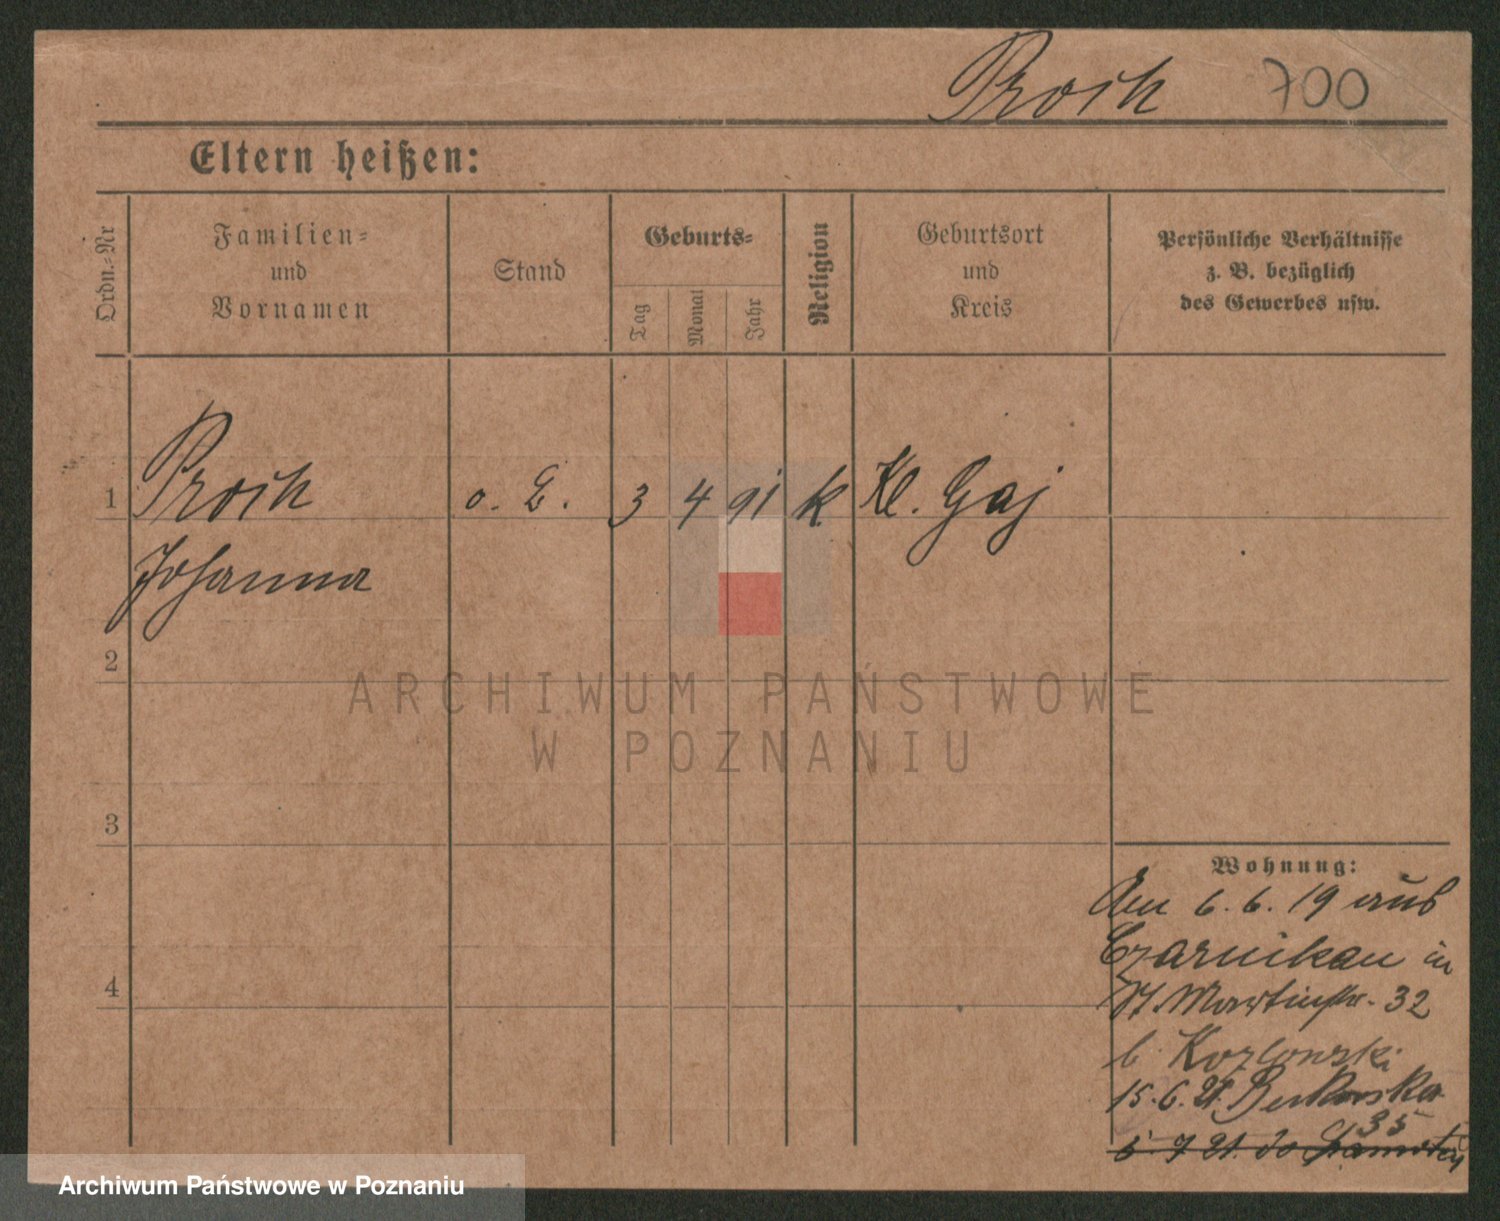 Proch 700
Eltern heißen:
Ordn.-Nr
Familien-
und
Vornamen
Stand
Geburts-
Tag
Monat
Jahr
Religion
Geburtsort
und
Kreis
Persönliche Verhältnisse
z. B. bezüglich
des Gewerbes usw.
1 Proch o. E. 3 4 91 k Kl. Gaj
Johanna
2
3
4
Wohnung:
Am 6. 6. 19 aus
Czarnikau in
St. Martinstr. 32
b. Kozlowski
15. 6. 21.
35
7 21. do
ARCHIWUM PAŃSTWOWE
W POZNANIU
Archiwum Państwowe w Poznaniu